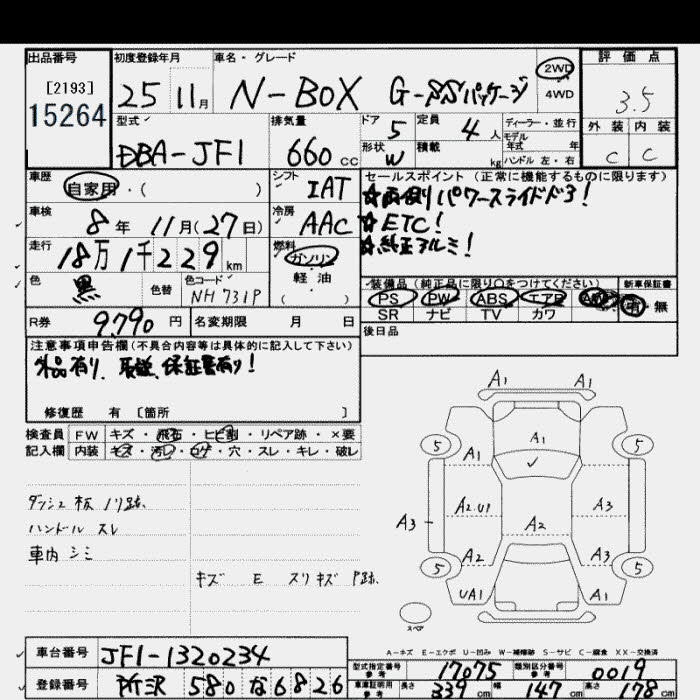 出品番号 初度登録年月 車名・グレード 評価点
[2193]
15264
25 11月 N-BOX G-SSパッケージ 2WD 4WD 3.5
型式 排気量 ドア 定員 ディーラー・並行
DBA-JF1 660cc 5 4人 モデル年式 年
形状 W 積載 kg ハンドル 左・右
外装 内装
C C
車歴 シフト セールスポイント(正常に機能するものに限ります)
自家用・( ) IAT ☆両側パワースライドドア!
車検 冷房 ☆ETC!
8年 11月(27日) AAC ☆純正アルミ!
走行 燃料
18万1千229km ガソリン
軽油
( )
色 色替 色コード
黒 NH731P
装備品(純正品に限り○をつけてください) 新車保証書
PS PW ABS エアB AW 有・無
SR ナビ TV カワ
R券 9,790円 名変期限 月 日
後日品
注意事項申告欄(不具合内容等は具体的に記入して下さい)
外品有り、取説、保証書有り!
修復歴 有 [箇所 ]
検査員 FW キズ・飛石・ヒビ割・リペア跡・×要
記入欄 内装 キズ・汚レ・コゲ・穴・スレ・キレ・破レ
ダッシュ板ノリ跡、
ハンドルスレ
車内シミ
キズ E スリキズ P跡、
A1 A1
A1
5 5
A1 A1
A3 A2.U1 A3
A2
A2 A3
5 5
UA1 A1
スペア
A-キズ E-エクボ U-凹み W-補修跡 S-サビ C-腐食 XX-交換済
車台番号 JF1-1320234
型式指定番号 参考 17075 類別区分番号 参考 0019
登録番号 所沢 580 な 6826
車庫証明用 参考 長さ 339cm 幅 147cm 高さ 178cm